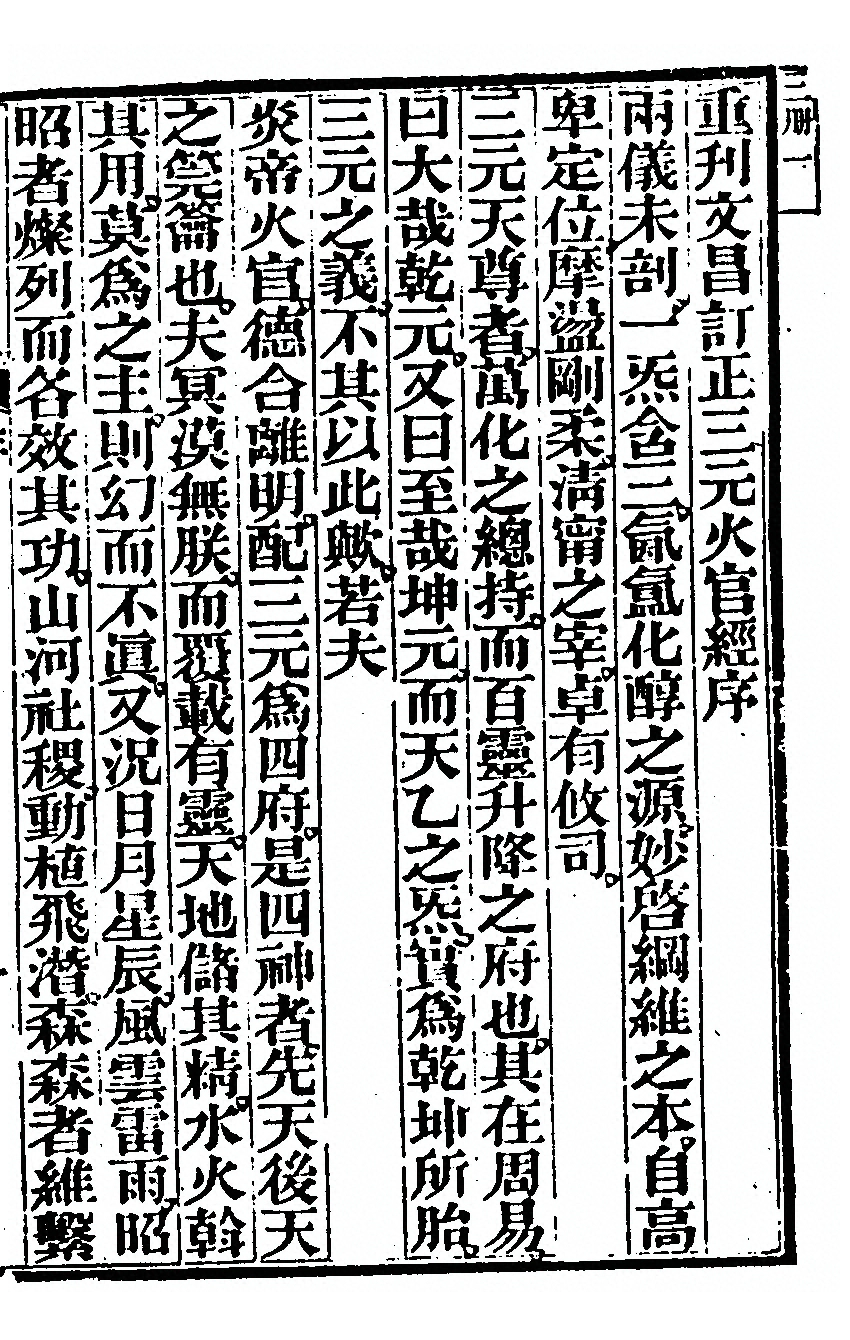 三册一
重刋文昌訂正三元火官經序
兩儀未剖。一炁含三。氤氳化醇之源。妙啓綱維之本。自高
卑定位。摩盪剛柔。淸甯之宰。卓有攸司。
三元天尊者。萬化之總持。而百靈升降之府也。其在周易。
曰大哉乾元。又曰至哉坤元。而天乙之炁。實爲乾坤所胎。
三元之義。不其以此歟。若夫
炎帝火官。德合離明。配三元爲四府。是四神者。先天後天
之筦籥也。夫冥漠無朕。而覆載有靈。天地儲其精。水火斡
其用。莫爲之主。則幻而不眞。又況日月星辰。風雲雷雨。昭
昭者燦列而各效其功。山河社稷。動植飛潛。森森者維繫